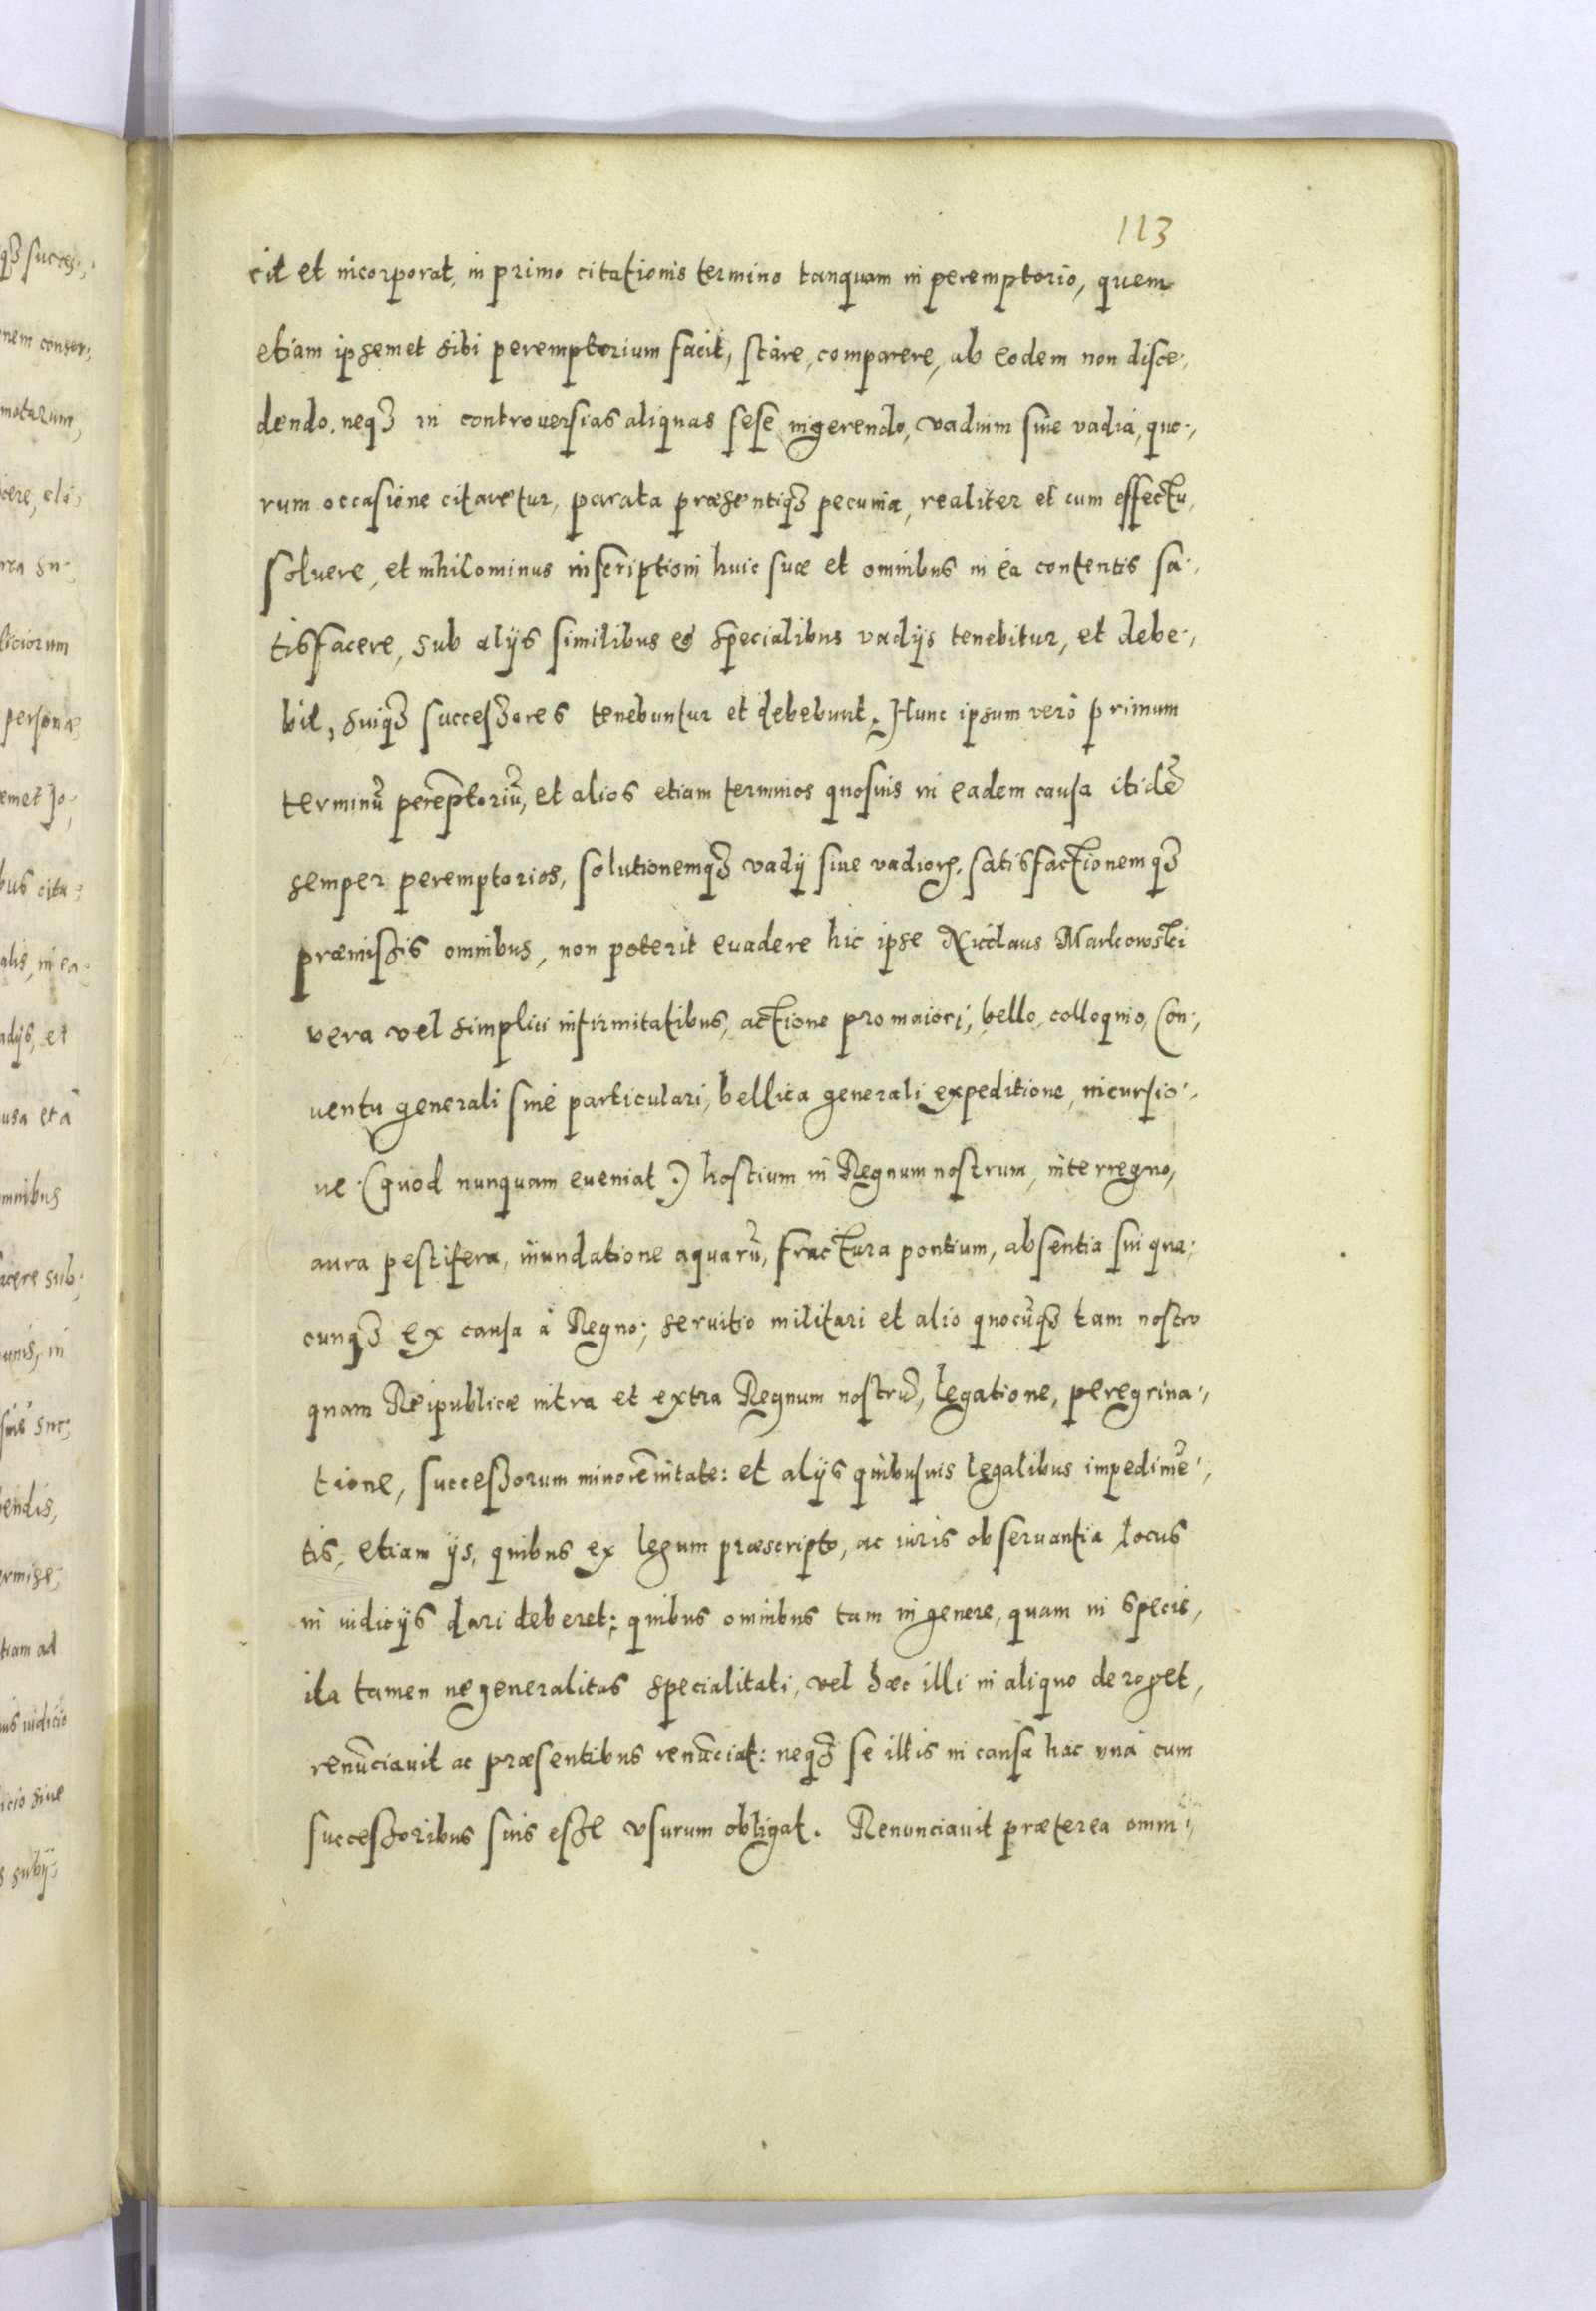 113
cit et incorporat, in primo citationis termino tanquam in peremptorio, quem
etiam ipsemet sibi peremptorium facit, stare, comparere, ab eodem non disce,
dendo, neqꝫ in controuersias aliquas sese ingerendo, vadium siue vadia, quo,
rum occasione citaretur, parata præsentiqꝫ pecunia, realiter et cum effectu,
soluere, et nihilominus inscriptioni huic suæ et omnibus in ea contentis sa,
tisfacere, sub alijs similibus et specialibus vadijs tenebitur, et debe,
bit, suiqꝫ successores tenebuntur et debebunt. Hunc ipsum verò primum
terminũ perẽptoriũ, et alios etiam terminos quosuis in eadem causa itidẽ
semper peremptorios, solutionemqꝫ vadij siue vadioꝝ, satisfactionemqꝫ
præmissis omnibus, non poterit euadere hic ipse Nicolaus Markowski
vera vel simplici infirmitatibus, actione pro maiori, bello, colloquio, Con,
uentu generali siue particulari, bellica generali expeditione, incursio,
ne (quod nunquam eueniat) hostium in Regnum nostrum, interregno,
aura pestifera, inundatione aquarũ, fractura pontium, absentia sui qua,
cunqꝫ ex causa à Regno; seruitio militari et alio quocũqꝫ tam nostro
quam Reipublicæ intra et extra Regnum nostrũ, legatione, peregrina,
tione, successorum minorẽnitate: et alijs quibusuis legalibus impedimẽ,
tis, etiam ijs, quibus ex legum præscripto, ac iuris obseruantia locus
in iudicijs dari deberet; quibus omnibus tam in genere, quam in specie,
ita tamen ne generalitas specialitati, vel hæc illi in aliquo deroget,
renũciauit ac præsentibus renũciat: neqꝫ se illis in causa hac unà cum
successoribus suis esse vsurum obligat. Renunciauit præterea omni,